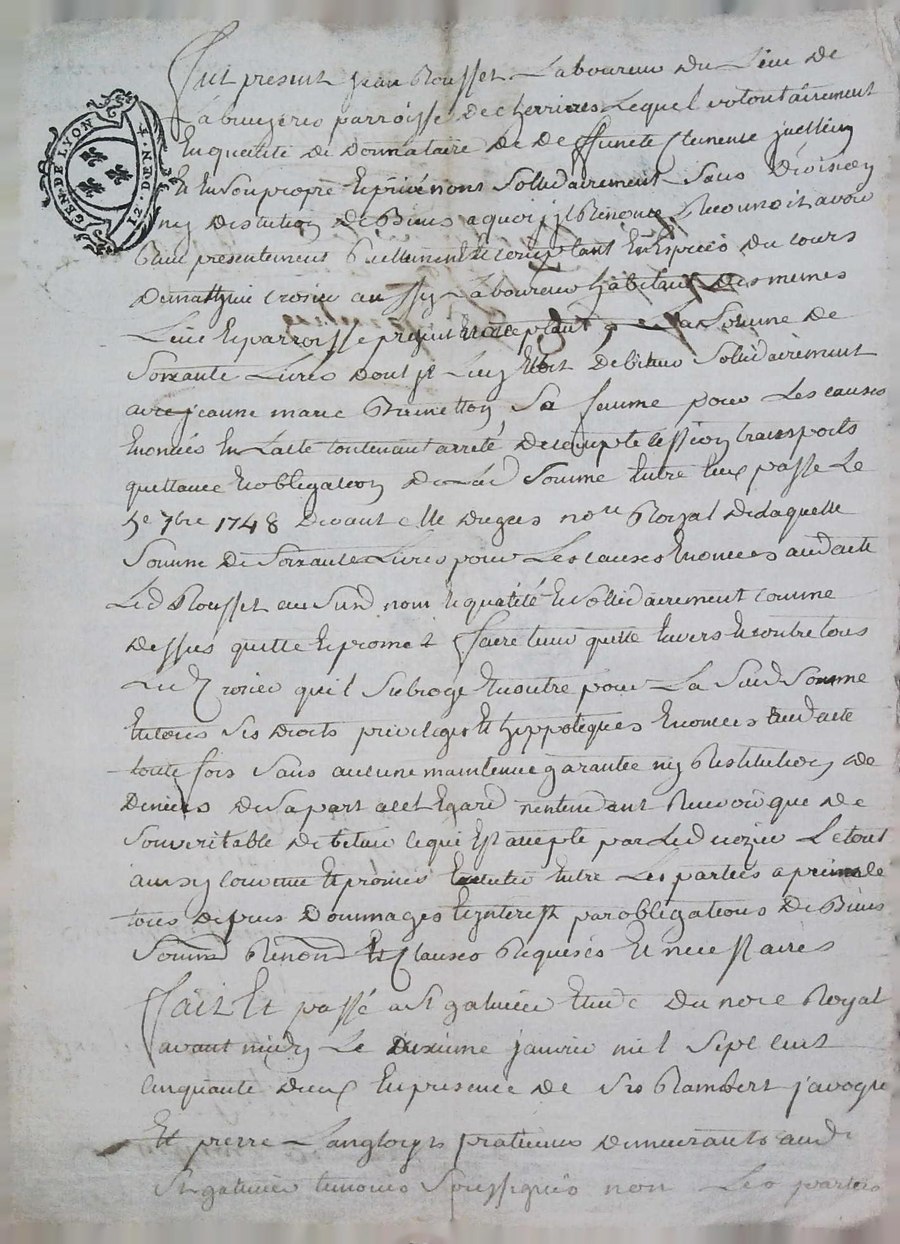 GEN. DE LYON
12. DEN. 4.
Fut present Jean Rousset Laboureur du Lieu de
Labruyerie parroisse de cherrieres Lequel volontairement
En qualité de Donnataire de deffuncte Clemence
Et En Son propre Et privé nom Sollidairement Sans Division
ny Distution De Biens a quoi jl Renonce Reconnoit avoir
Reellement Et comptant En Especes du cours
De mathieu crosier aussy Laboureur habitant Des memes
Lieu Et parroisse present Et acceptant La Somme de
Soixante Livres Dont jl Luy Etoit Debiteur Sollidairement
avec jeanne marie Sa femme pour Les causes
Enoncées En Lacte contenant arreté De compte cession transports
quittance Et obligation De Lad Somme Entre Eux passé Le
5e 7bre 1748 Devant Me nore Royal De Laquelle
Somme De Soixante Livres pour Les causes Enoncées aud acte
Led Rousset au Susd nom Et qualité Et Sollidairement comme
Dessus quitte Et promet faire tenir quitte Envers Et contre tous
Led Crosier quil Subroge En outre pour La Susd Somme
En tous Ses Droits privileges Et hyppoteques Enoncées aud acte
toute fois Sans aucune maintenue garantie ny Restitution de
Deniers De Sa part a cet Egard nentendant Recevoir que de
Son veritable Debiteur ce qui Est accepté par Led crozier Le tout
ainsy convenu Et promis Executer Entre Les parties a peine de
tous Depens Dommages Et jnterest par obligations De Biens
Soumd Renond Et Clauses Requises Et necessaires
Fait Et passé a St galmier Etude Du nore Royal
avant midy Le Deuxieme janvier mil Sept cent
Cinquante Deux En presence de Srs Rambert javogue
Et pierre Langlois praticiens Demeurants aud
St galmier temoins Soussignés non Les parties